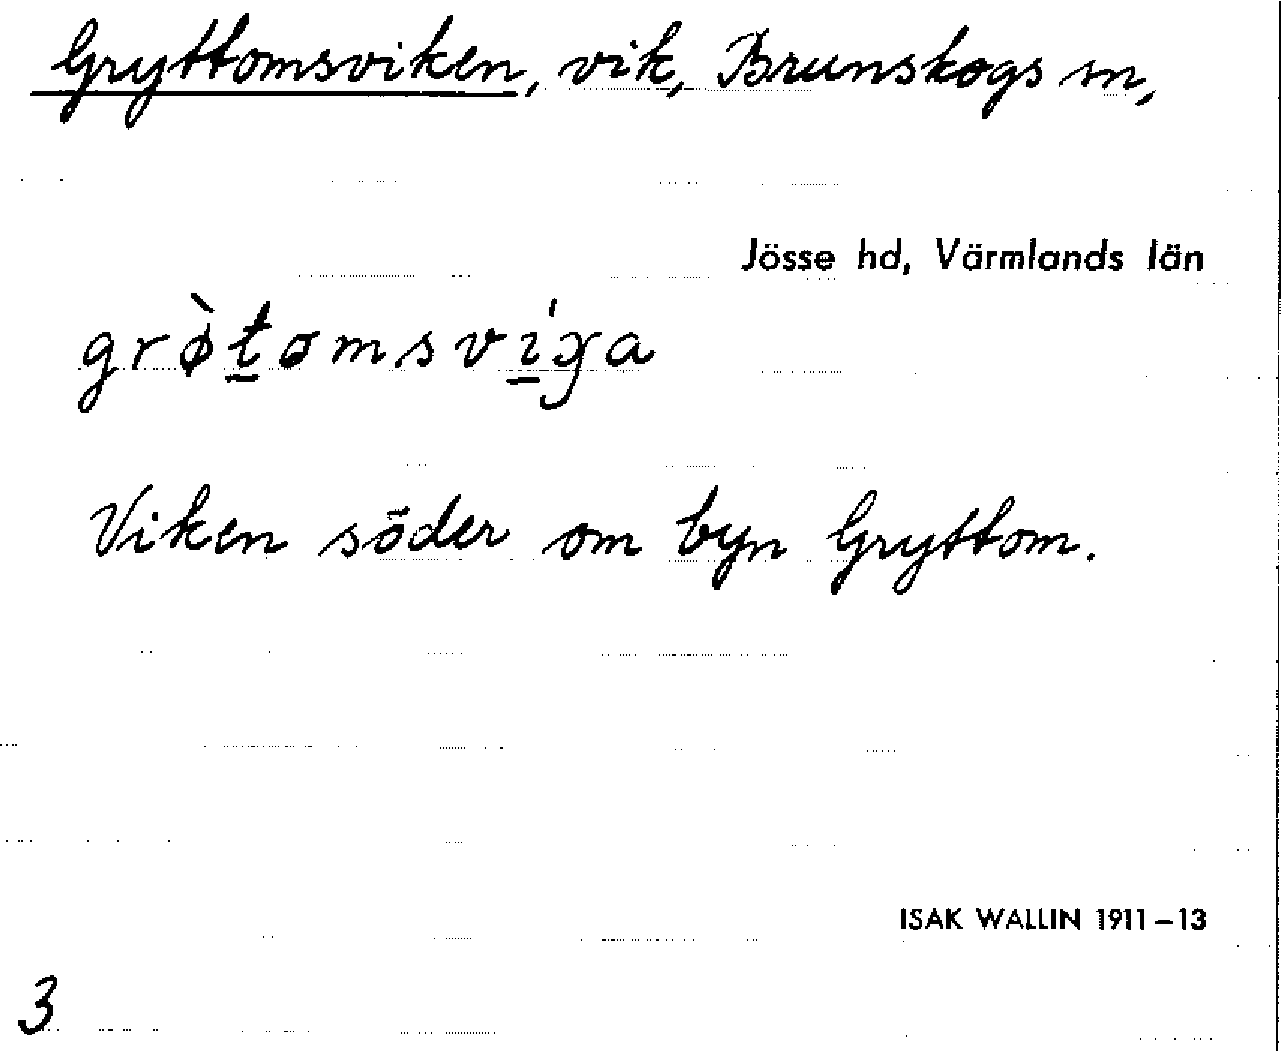 Gryttomsviken, vik, Brunskogs sn,
Jösse hd, Värmlands län
grø̀t̠omsví̠ga
Viken söder om byn Gryttom.
ISAK WALLIN 1911–13
3